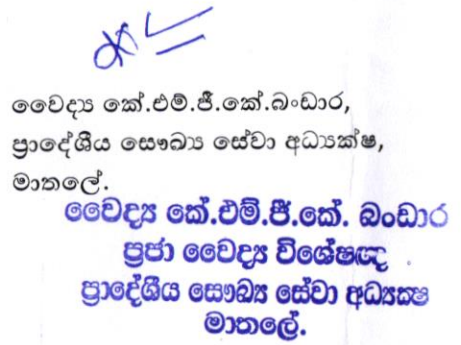 වෛද්‍ය කේ.එම්.ජී.කේ.බංඩාර,
ප්‍රාදේශීය සෞඛ්‍ය සේවා අධ්‍යක්ෂ,
මාතලේ.
වෛද්‍ය කේ.එම්.ජී.කේ. බංඩාර
ප්‍රජා වෛද්‍ය විශේෂඥ
ප්‍රාදේශීය සෞඛ්‍ය සේවා අධ්‍යක්ෂ
මාතලේ.